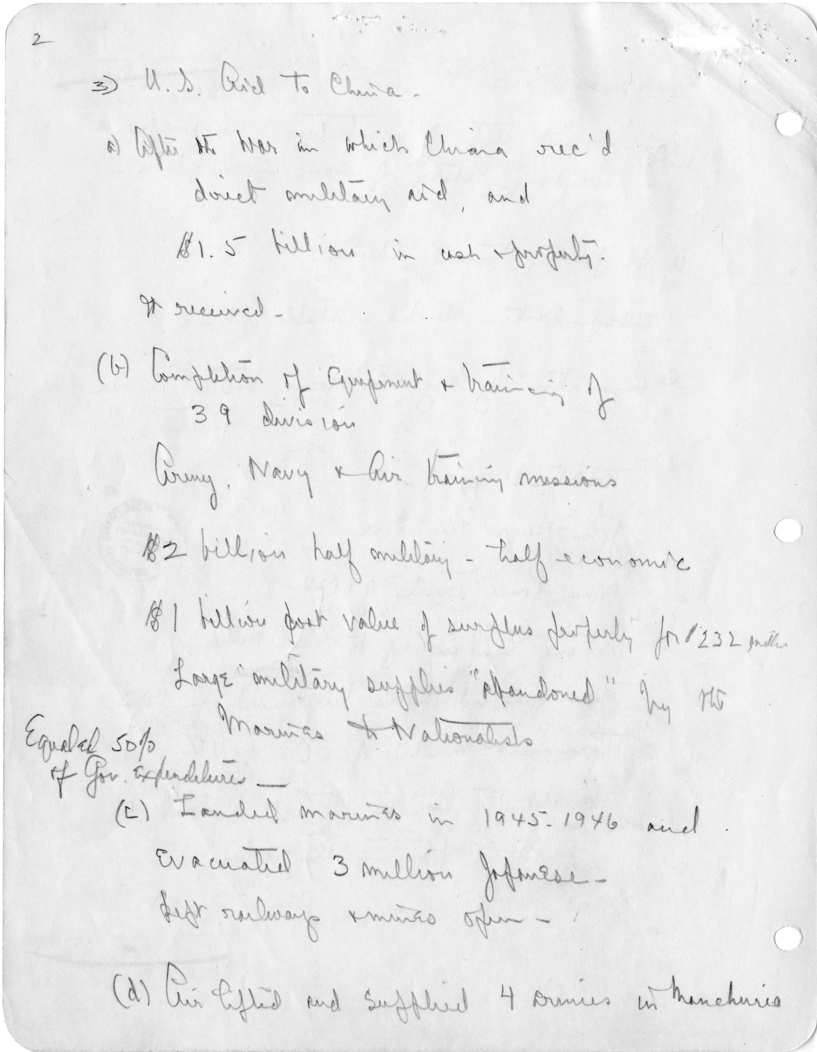 2
3) U.S. Aid to China -
a) After the War in which China rec'd
direct military aid, and
$1.5 billion in cash & property.
It received -
(b) Completion of Equipment & training of
39 division
Army, Navy & Air training missions
$2 billion half military - half economic
$1 billion cost value of surplus property for $232 million
Large military supplies "abandoned" by the
Marines to Nationalists
Equaled 50%
of Gov. Expenditures —
(c) Landed marines in 1945-1946 and
Evacuated 3 million Japanese -
Kept railways & mines open -
(d) Air lifted and supplied 4 armies in Manchuria